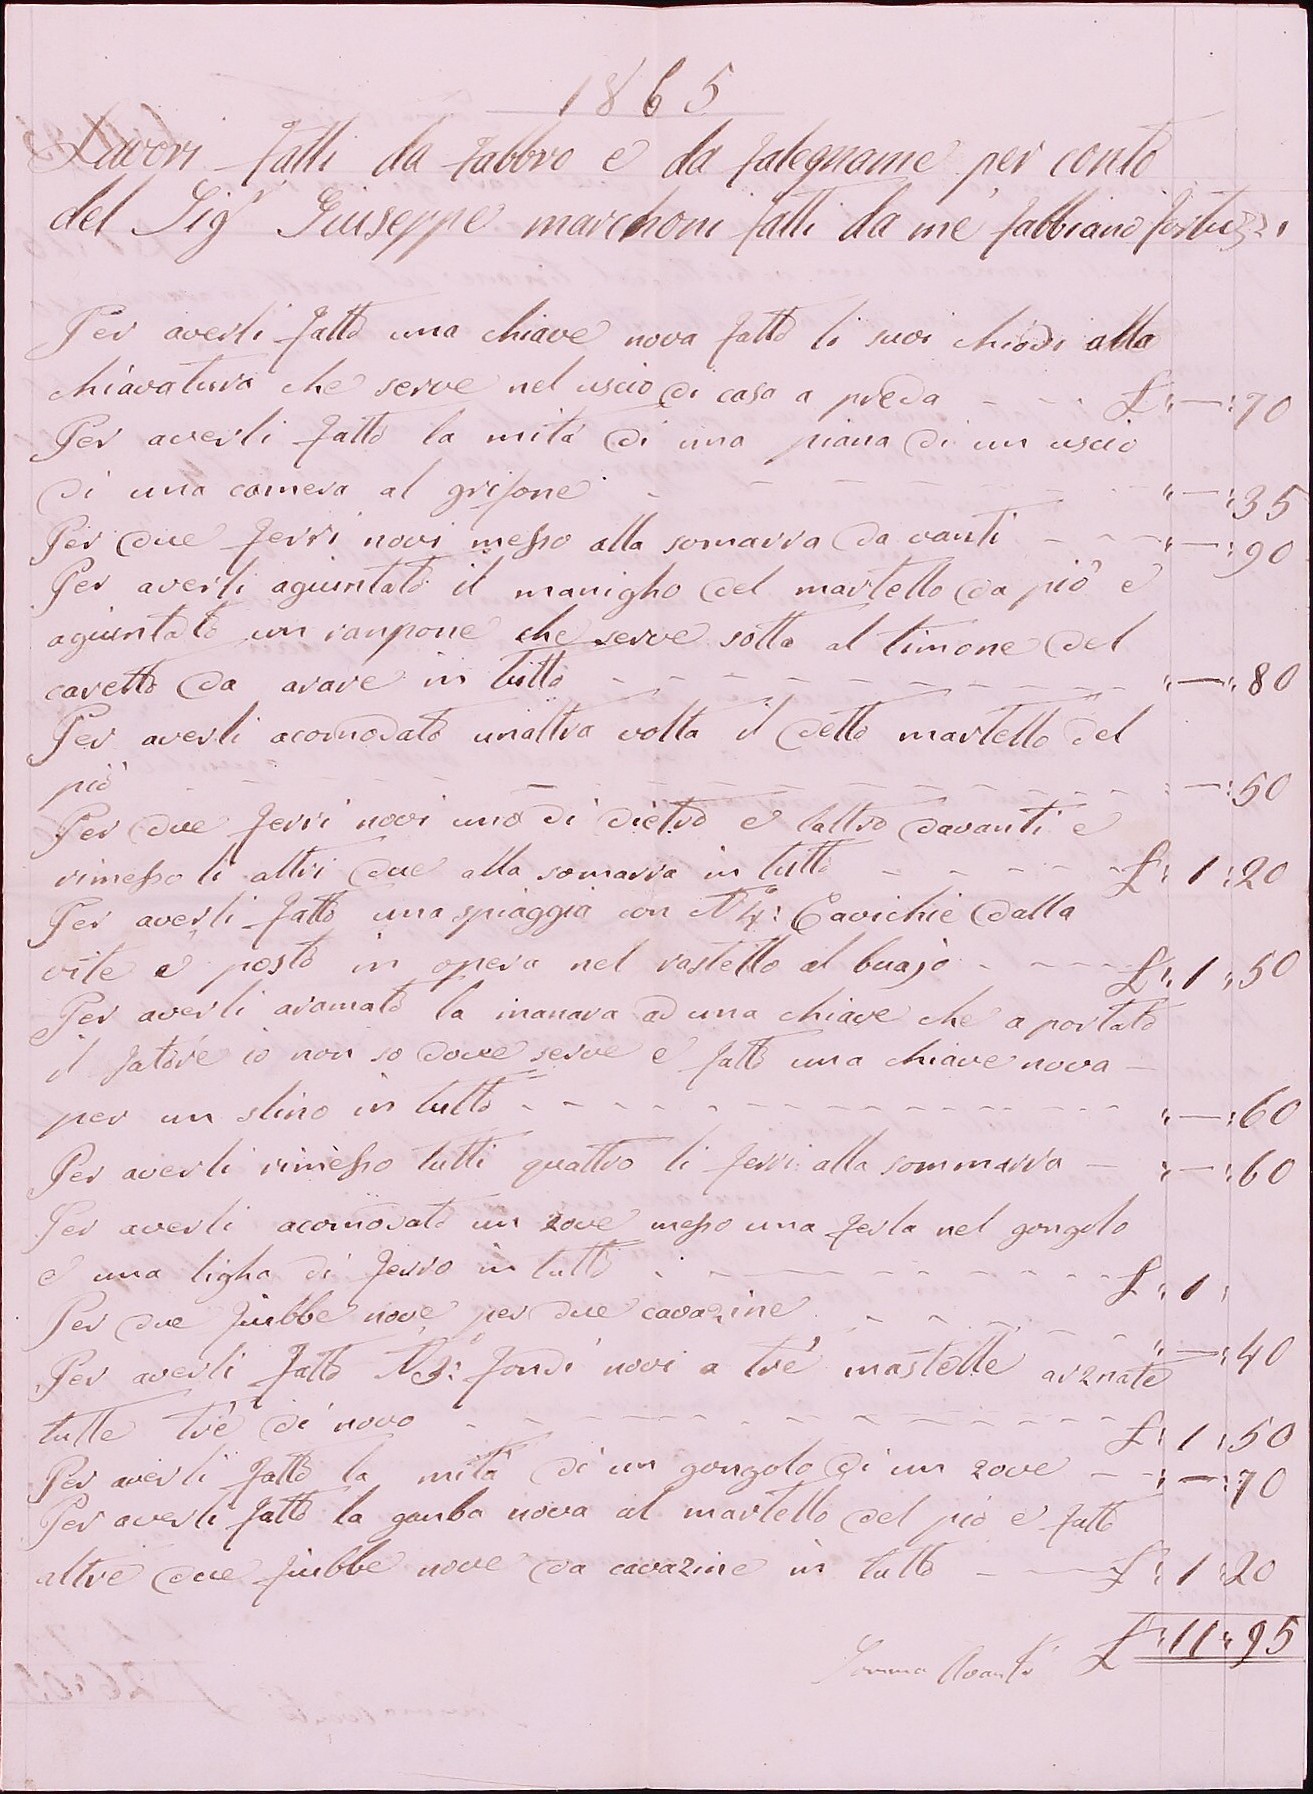 1865
Lavori fatti da fabbro e da falegname per conto
del Sigr Giuseppe marchoni fatti da me fabbiano fortuzzi
Per averli fatto una chiave nova fatto li suoi chiodi alla
chiavatura che serve nel uscio di casa a preda - - - £ : — : 70
Per averli fatto la mità di una piana di un uscio
di una camera al grifone - - - - " — : 35
Per due ferri novi messo alla somarra da vanti - - - " — : 90
Per averli agiuntato il manigho del martello da piò e
agiuntato un ranpone che serve sotto al timone del
caretto da arare in tutto - - - - " — " 80
Per averli acomodato unaltra volta il detto martello del
piò - - - - — : 50
Per due ferri novi uno di dietro e laltro davanti e
rimesso li altri due alla somarra in tutto - - - - £ : 1 : 20
Per averli fatto una spiaggia con N° 4: Cavichie dalla
vite e posto in opera nel rastello al buajo - - - £ : 1 : 50
Per averli aramato la inanara ad una chiave che a portato
il fatore io non so dove serve e fatto una chiave nova —
per un slino in tutto - - - - " — : 60
Per averli rimesso tutti quattro li ferri alla sommarra — " — : 60
Per averli acomodato un zove messo una ferla nel gongolo
e una ligha di ferro in tutto - - - - £ : 1 :
Per due fiubbe nove per due cavazine - - - - " — : 40
Per averli fatto N° 3: fondi novi a tre mastelle arznate
tutte tre di novo - - - - £ : 1 : 50
Per averli fatto la mità di un gongolo di un zove - - " — : 70
Per averli fatto la ganba nova al martello del piò e fatto
altre due fiubbe nove da cavazine in tutto - - £ : 1 : 20
Somma Avanti £ : 11 : 95